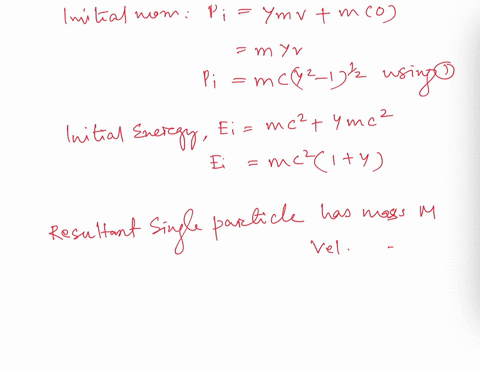 Initial mom: Pi = γmv + m(0)
= mγv
Pi = mc(γ²-1)^½ using ①
Initial Energy, Ei = mc² + γmc²
Ei = mc²(1+γ)
Resultant Single particle has mass M
Vel. -